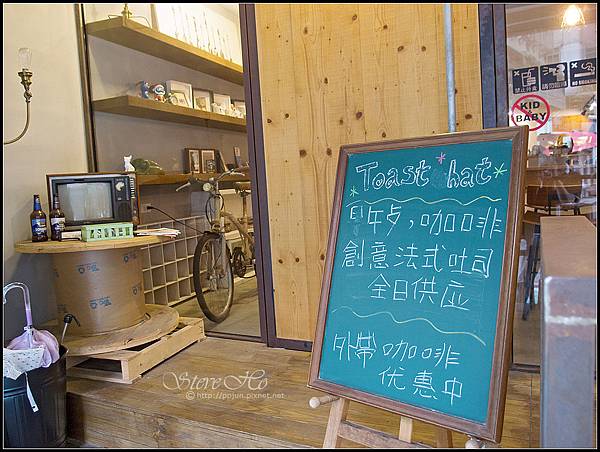 Toast hat
早午歺，咖啡
創意法式吐司
全日供应
外帶咖啡
优惠中
KID
BABY
NO SMOKING
Steve Ho
©http://ppjun.pixnet.net